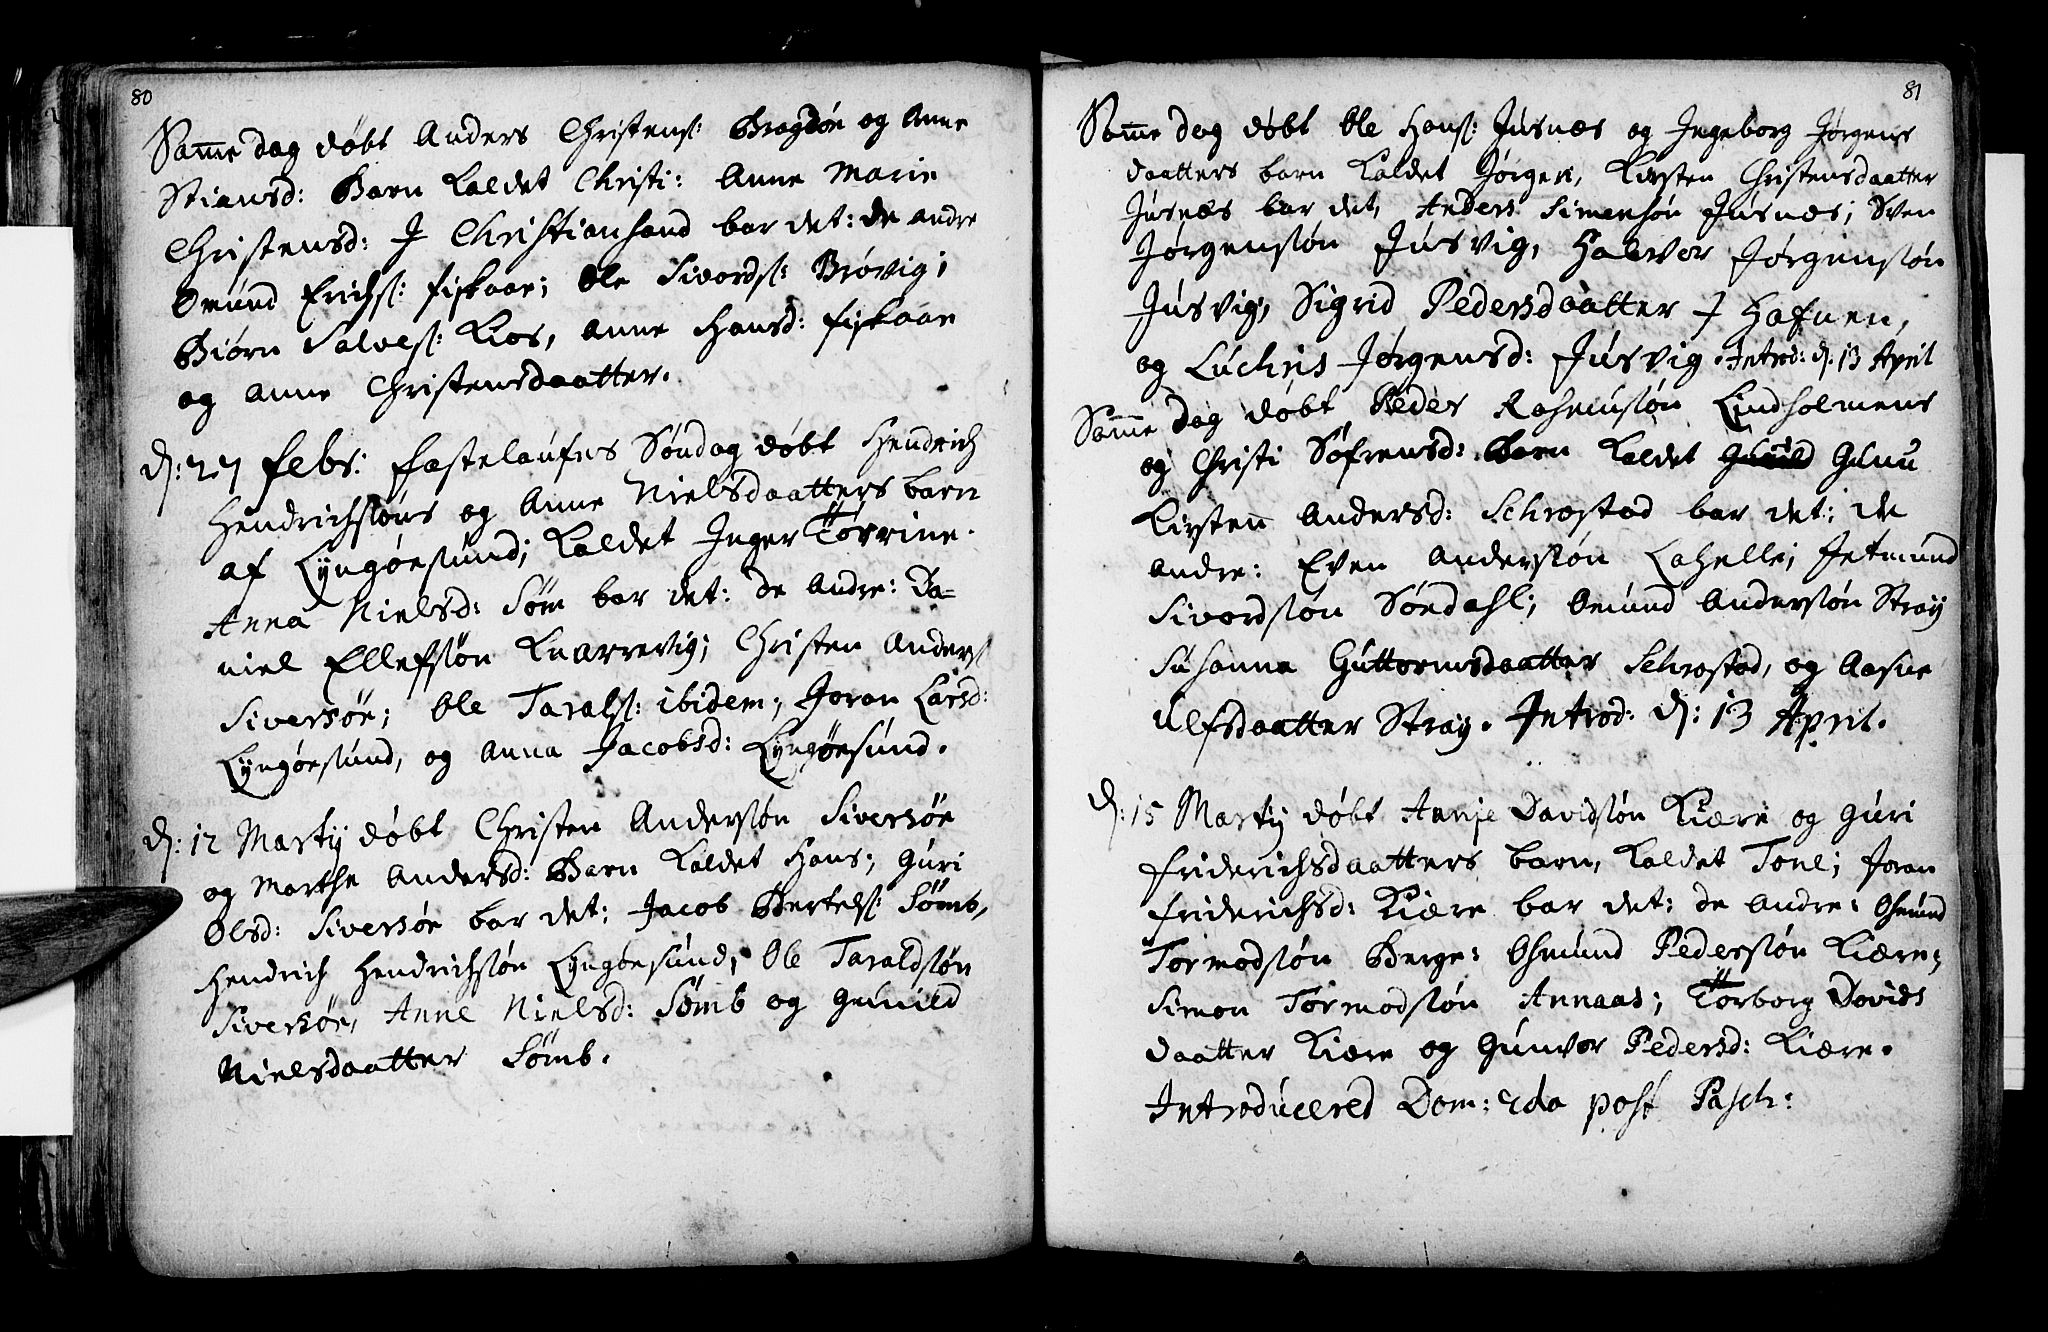 80
Samme dag döbt Anders Christens: Bragdöe og Anne
Stiansd: Barn kaldet Christi: Anne Marie
Christensd: J Christiansand bar det: de andre
Omund Erichs: fiskaae; Ole Sivords: Brövig;
Biörn Salves: Kios, Anne Hansd: fiskaae
og Anne Christensdaatter.
d: 27 febr: fastelaufns Söndag döbt Hendrich
Hendrichsöns og Anne Nielsdaatters barn
af Lyngöesund; kaldet Inger Torrine.
Anna Nielsd: Söm bar det: de Andre: Da-
niel Ellefsön Knarrevig; Christen Anders:
Siversöe; Ole Tarals: ibidem; Joran Larsd:
Lyngöesund, og Anna Jacobsd: Lyngöesund.
d: 12 Martij döbt Christen Andersön Siversöe
og Marthe Andersd: Barn kaldet Hans; Guri
Olsd: Siversöe bar det; Jacob Bertels: Sömb,
Hendrich Hendrichsön Lyngöesund; Ole Taraldsön
Siversöe, Anne Nielsd: Sömb og Gunild
Nielsdaatter Sömb.
81
Samme dag döbt Ole Hans: Jusnæs og Ingeborg Jörgens
daatters barn kaldet Jörgen, Kirsten Christensdaatter
Jusnæs bar det, Anders Simensön Jusnæs; Sven
Jörgensön Jusvig, Halvor Jörgensön
Jusvig, Sigrid Pedersdaatter J Hafnen,
og Luchris Jörgensd: Jusvig. Introd: d: 13 April
Samme dag döbt Peder Rasmusön Lindholmens
og Christi Söfrensd: Barn kaldet Gunu
Kirsten Andersd: Schrostad bar det; de
andre: Even Andersön Lahelle; Jetmund
Sivordsön Söedahl; Omund Andersön Stray
Susanna Guttormsdaatter Schrostad, og Aasne
Ulfsdaatter Stray. Introd: d: 13 April.
d: 15 Martij döbt Annje Davidsön Kiære og Guri
Friderichsdaatters barn, kaldet Tone; Joran
Friderichsd: Kiære bar det: de Andre: Osmund
Tormodsön Berge: Osmund Pedersön Kiære;
Simon Tormodsön Annaas; Torborg Davids
daatter Kiære og Gunvor Pedersd: Kiære.
Introduceret Dom: 2da post Pasch: